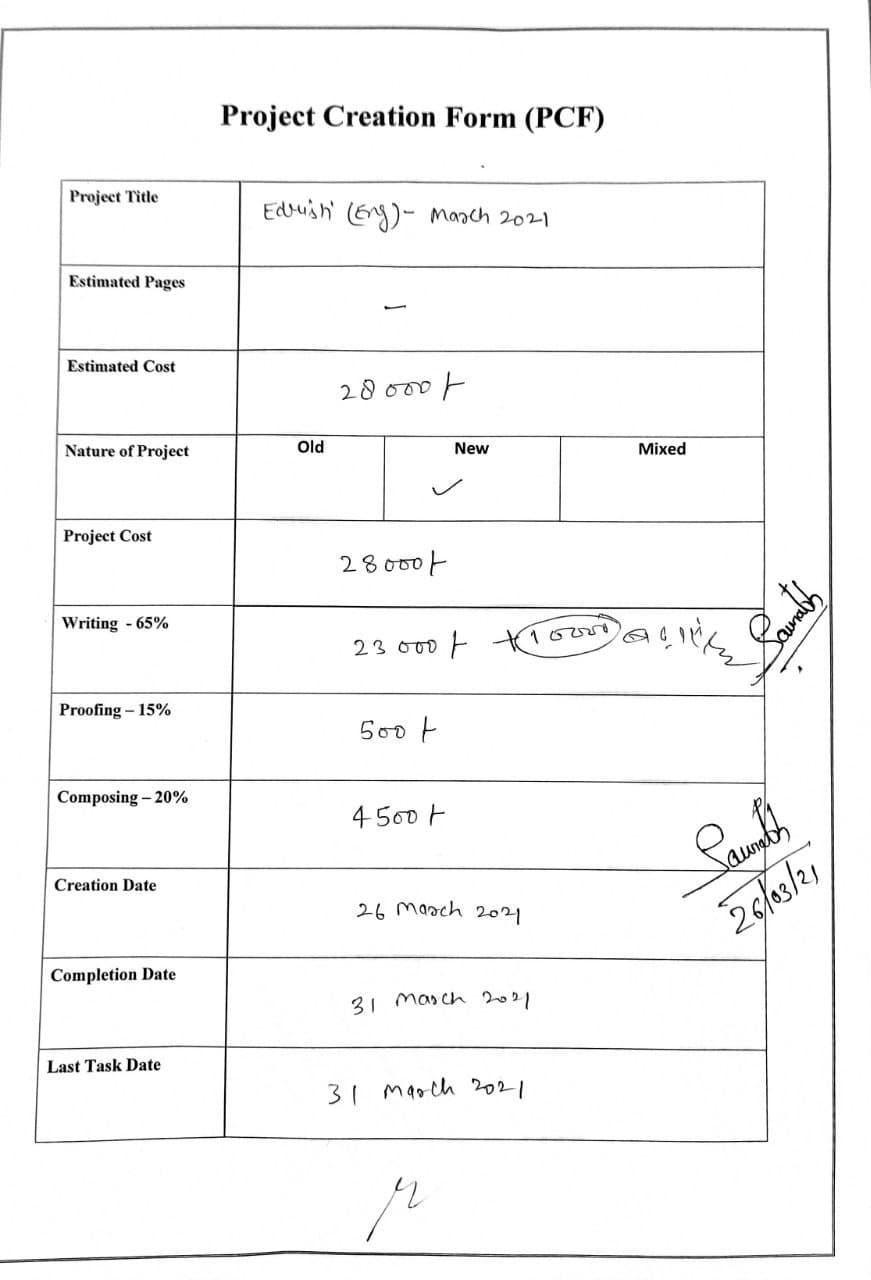 Project Creation Form (PCF)
Project Title
Edrishti (Eng) - March 2021
Estimated Pages
—
Estimated Cost
28000/-
Nature of Project
Old
New
Mixed
✓
Project Cost
28000/-
Writing - 65%
23000/- + 10000
Saurabh
Proofing – 15%
500/-
Composing – 20%
4500/-
Saurabh
26/03/21
Creation Date
26 March 2021
Completion Date
31 March 2021
Last Task Date
31 March 2021